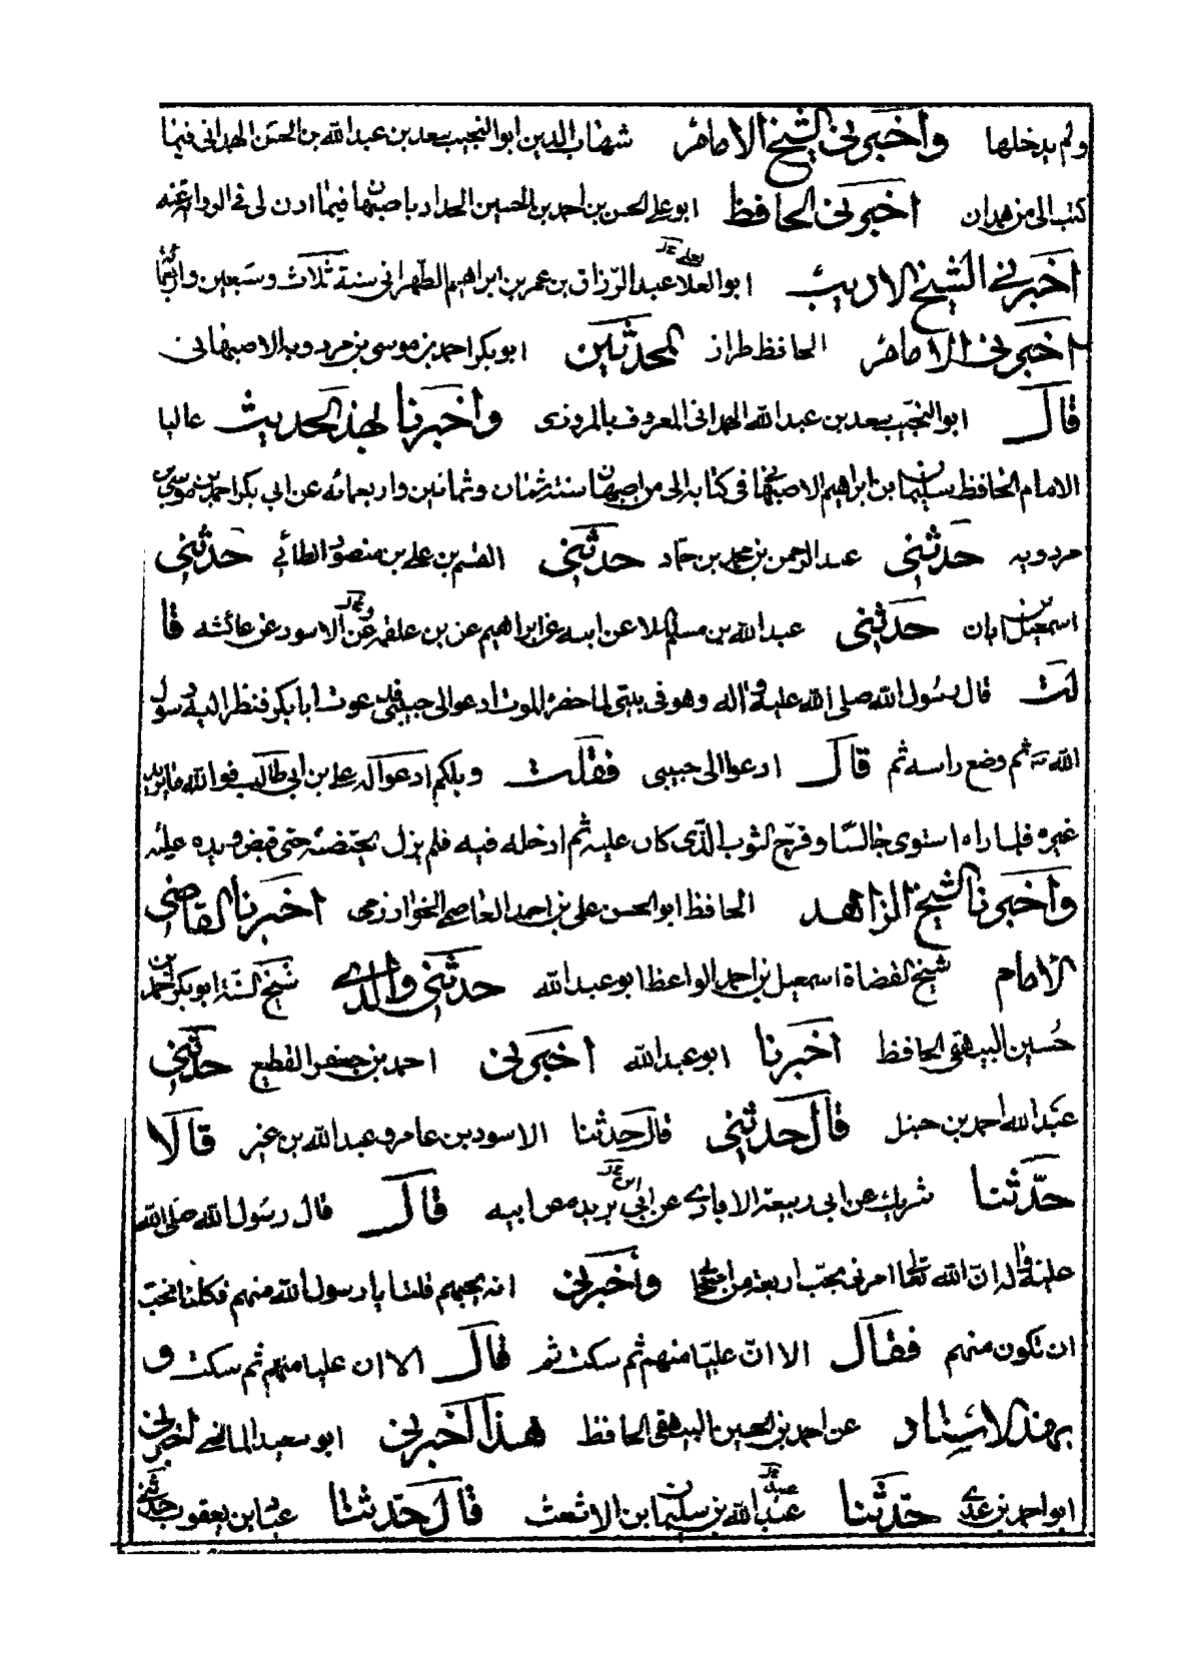 ولم يدخلها واخبرنى الشيخ الامام شهاب الدين ابو النجيب سعد بن عبد الله بن الحسن الهمدانى فيما
كتب الى من همدان اخبرنى الحافظ ابو على الحسن بن احمد بن الحسين الحداد باصبهان فيما اذن لى فى الرواية عنه
اخبرنى الشيخ الاديب ابو العلا عبد الرزاق بن عمر بن ابراهيم الطهرانى سنة ثلاث وسبعين واربعمائة
اخبرنى الامام الحافظ طراز المحدثين ابو بكر احمد بن موسى بن مردويه الاصبهانى
قال ابو النجيب سعد بن عبد الله الهمدانى المعروف بالمروزى واخبرنا بهذا الحديث عاليا
الامام الحافظ سليمان بن ابراهيم الاصبهانى فى كتابه الى من اصبهان سنة ثمان وثمانين واربعمائه عن ابى بكر احمد بن موسى بن
مردويه حدثنى عبد الرحمن بن محمد بن حماد حدثنى القسم بن على بن منصور الطائى حدثنى
اسمعيل بن ابان حدثنى عبد الله بن مسلم الملا عن ابيه عن ابراهيم عن بن علقمه عن الاسود عن عائشه قا
لت قال رسول الله صلى الله عليه واله وهو فى بيتى لما حضره الموت ادعوا لى حبيبى فدعوت ابا بكر فنظر اليه رسول
الله ثم وضع راسه ثم قال ادعوا الى حبيبى فقلت ويلكم ادعوا له على بن ابى طالب فوالله ما يريد
غيره فلما راه استوى جالسا وفرج الثوب الذى كان عليه ثم ادخله فيه فلم يزل يحتضنه حتى قبض ويده عليه
واخبرنا الشيخ الزاهد الحافظ ابو الحسن على بن احمد العاصمى الخوارزمى اخبرنا القاضى
الامام شيخ القضاة اسمعيل بن احمد الواعظ ابو عبد الله حدثنى والدى شيخ السنة ابو بكر احمد بن
حسين البيهقى الحافظ اخبرنا ابو عبد الله اخبرنى احمد بن جعفر القطيعى حدثنى
عبد الله احمد بن حنبل قال حدثنى قال حدثنا الاسود بن عامر وعبد الله بن نمير قالا
حدثنا شريك عن ابى ربيعة الايادى عن ابن بريده عن ابيه قال قال رسول الله صلى الله
عليه واله ان الله تعالى امرنى بحب اربعة من اصحابى واخبرنى انه يحبهم قلنا يا رسول الله منهم فكلنا نحب
ان نكون منهم فقال الا ان عليا منهم ثم سكت ثم قال الا ان عليا منهم ثم سكت و
بهذا الاسناد عن احمد بن الحسين البيهقى الحافظ هذا اخبرنى ابو سعيد المالينى اخبرنى
ابو احمد بن عدى حدثنا عبد الله بن سليمان بن الاشعث قال حدثنا عباد بن يعقوب حدثنى